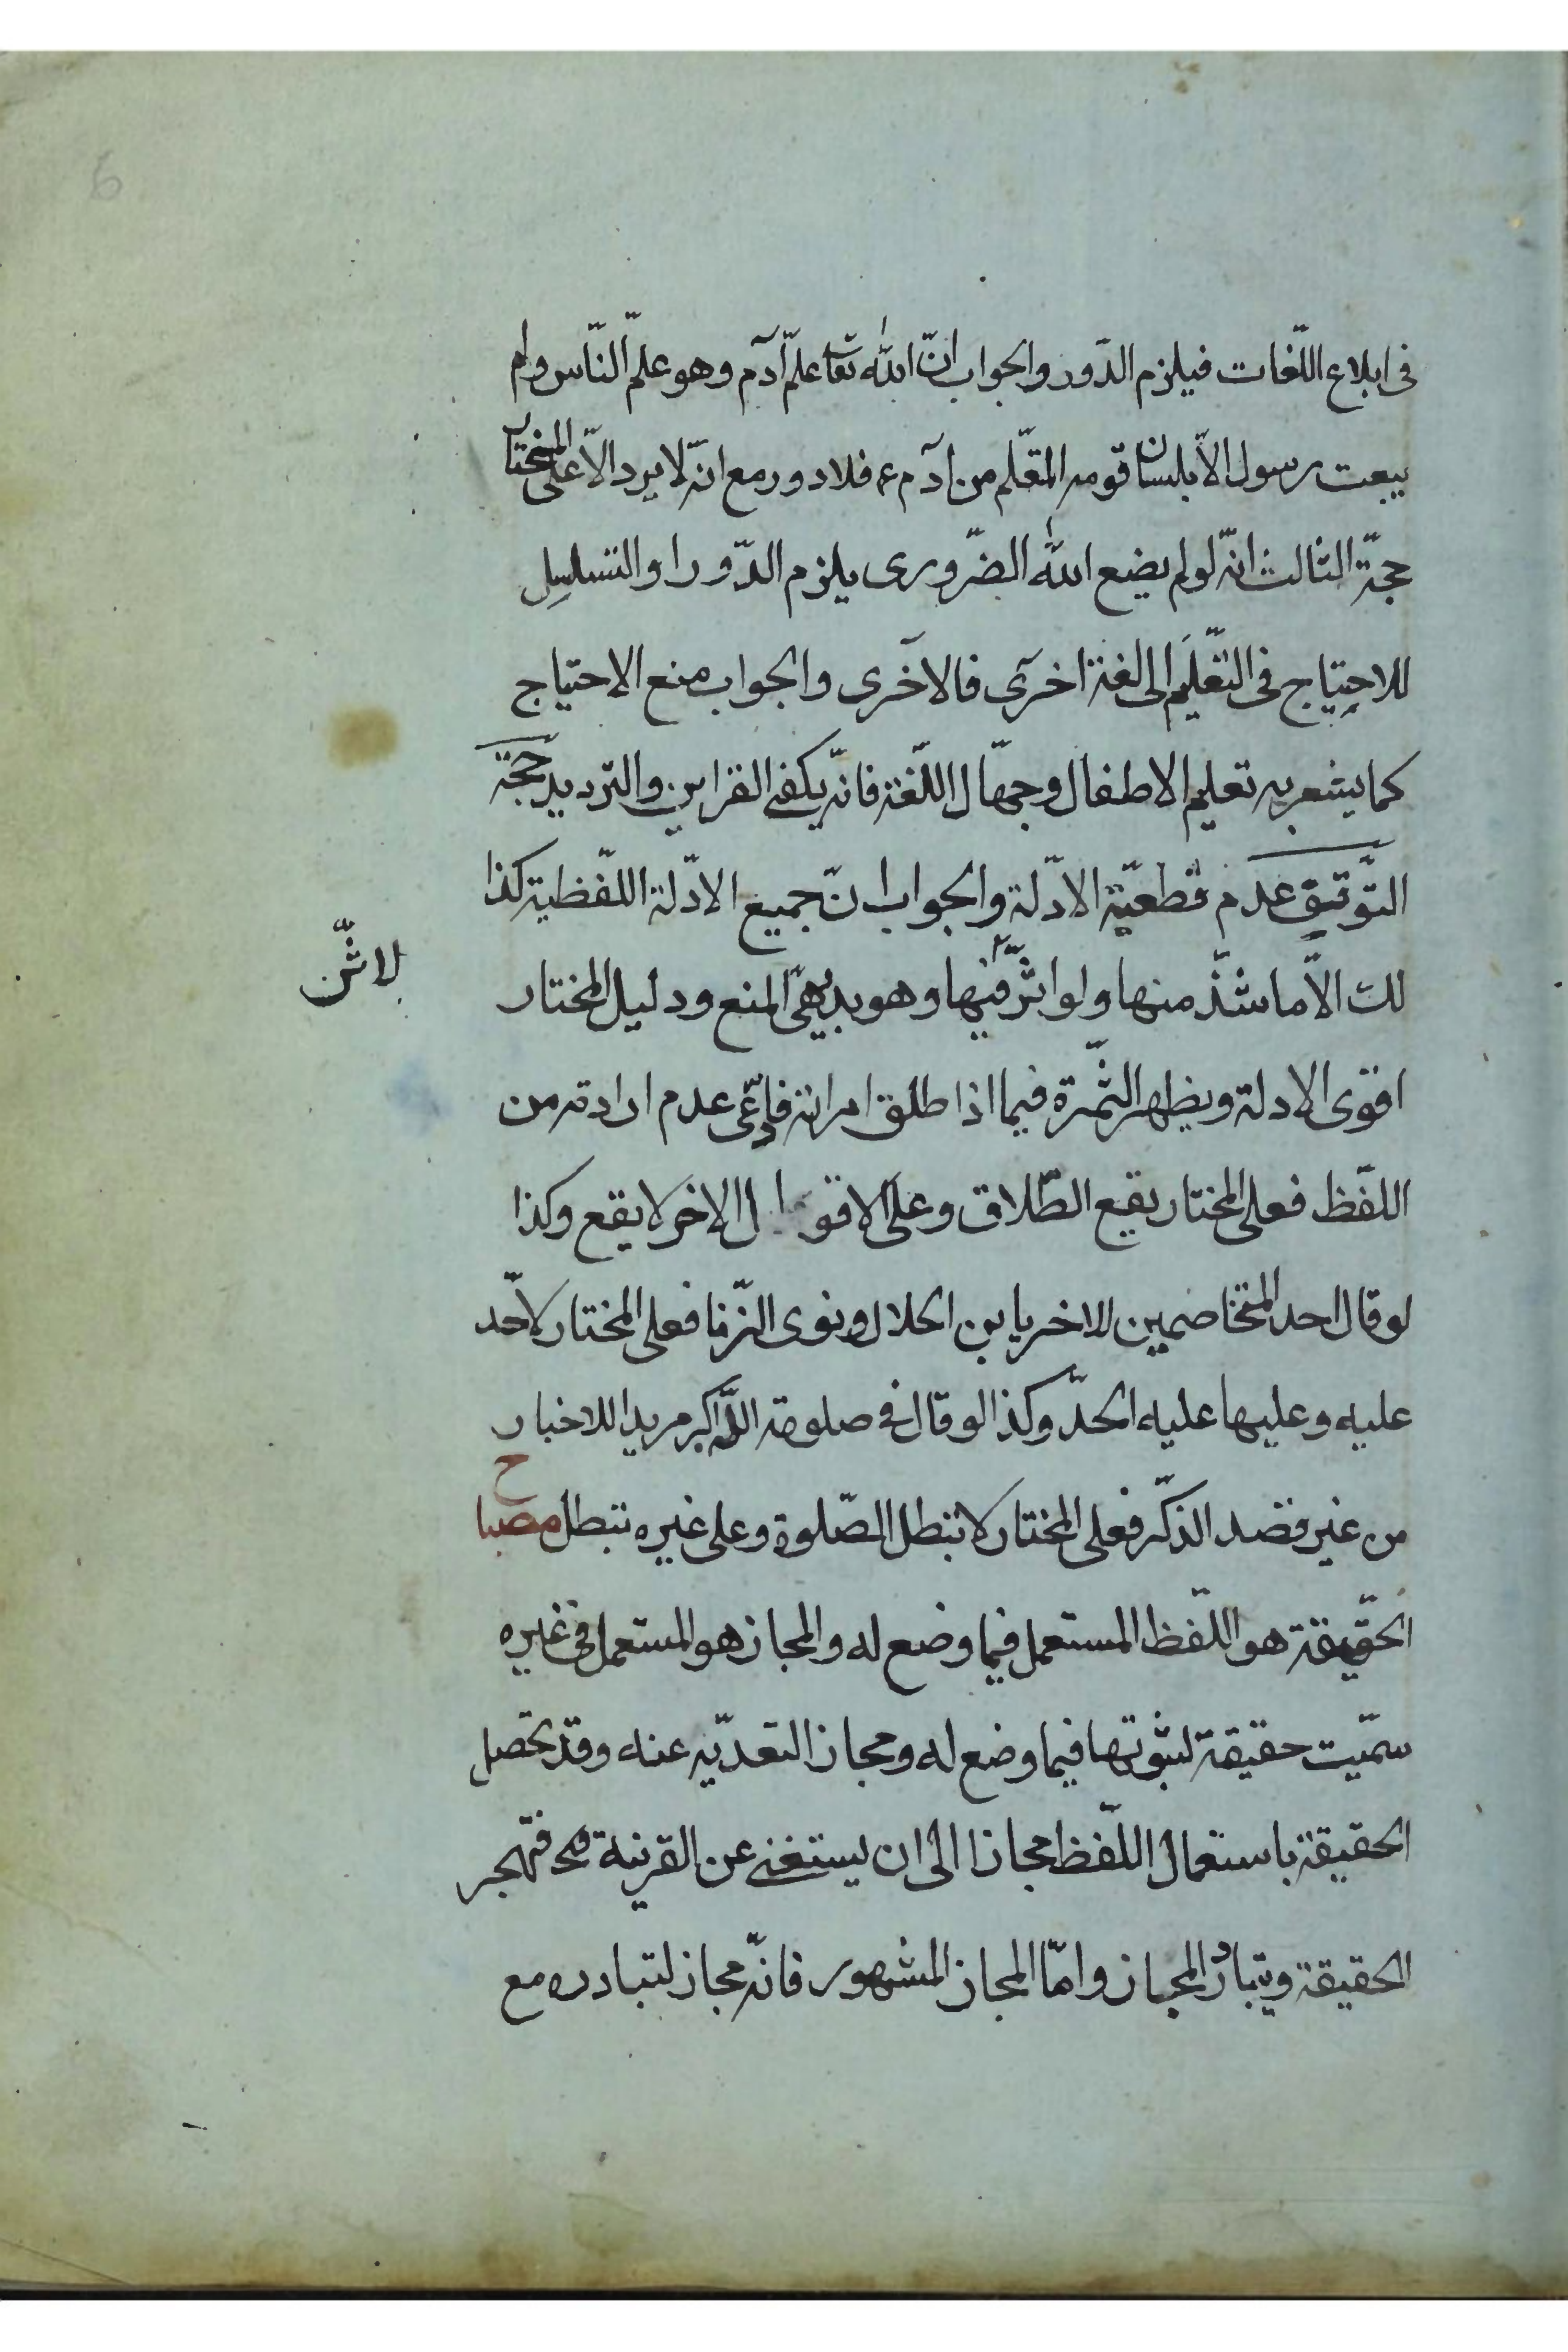 فى ابلاع اللّغات فيلزم الدّور والجواب انّ اللّه تعا علّم آدم وهو علّم النّاس ولم
يبعث رسول الاّ بلسان قومه المتعّلم من آدم ع فلا دور مع انّه لا يرد الاّ على المختار
حجّة الثالث انّه لو لم يضع اللّه الضّرورى يلزم الدّور او التسلسل
للاحتياج فى التّعليم الى لغة اخرى فالاخرى والجواب منع الاحتياج
كما يشعر به تعليم الاطفال وجهّال اللّغة فانّه يكفى القراين والتّرديد حجّة
التّوقيق عدم قطعيّة الادّلة والجواب انّ جميع الادّلة اللّفظية كذا
لك الاّ ما شذّ منها ولو اثّر فيها وهو بديهىّ المنع ودليل المختار
لا شّن
اقوى الادلة ويظهر الثّمرة فيما اذا طلق امراته فادّعى عدم ارادته من
اللّفظ فعلى المختار يقع الطّلاق وعلى الاقوال الاخر لا يقع وكذا
لو قال احد المتخاصمين للاخر يا بن الحلال ونوى الزّنا فعلى المختار لا حّد
عليه وعليها عليه الحدّ وكذا لو قال فى صلوته اللّه اكبر مريدا للاخبار
من غير قصد الذكّر فعلى المختار لا تبطل الصّلوة وعلى غيره تبطل مصباح
الحقّيقة هو اللّفظ المستعمل فيما وضع له والمجاز هو المستعمل فى غيره
سمّيت حقيقة لثبوتها فيما وضع له ومجازا لتعدّيه عنه وقد تحصل
الحقيقة باستعمال اللّفظ مجازا الى ان يستغنى عن القرينة فح فتهجر
الحقيقة ويتبادر المجاز وامّا المجاز المشهور فانّه مجاز لتبادره مع